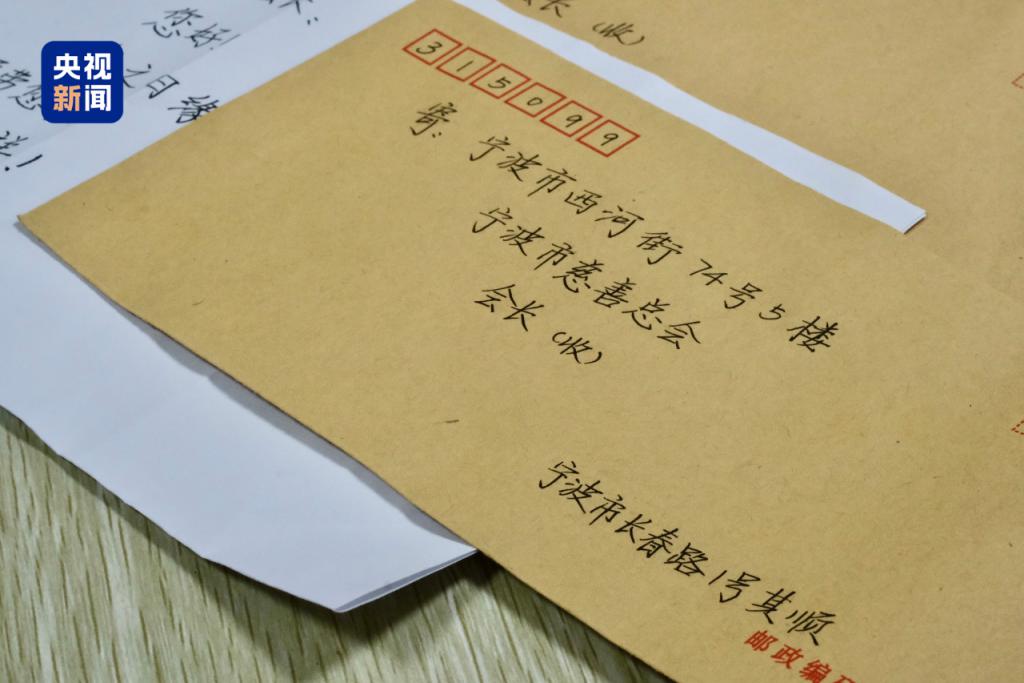 央视
新闻
您好!
之日
会长(收)
315099
寄: 宁波市西河街74号5楼
宁波市慈善总会
会长(收)
宁波市长春路1号其顺
邮政编